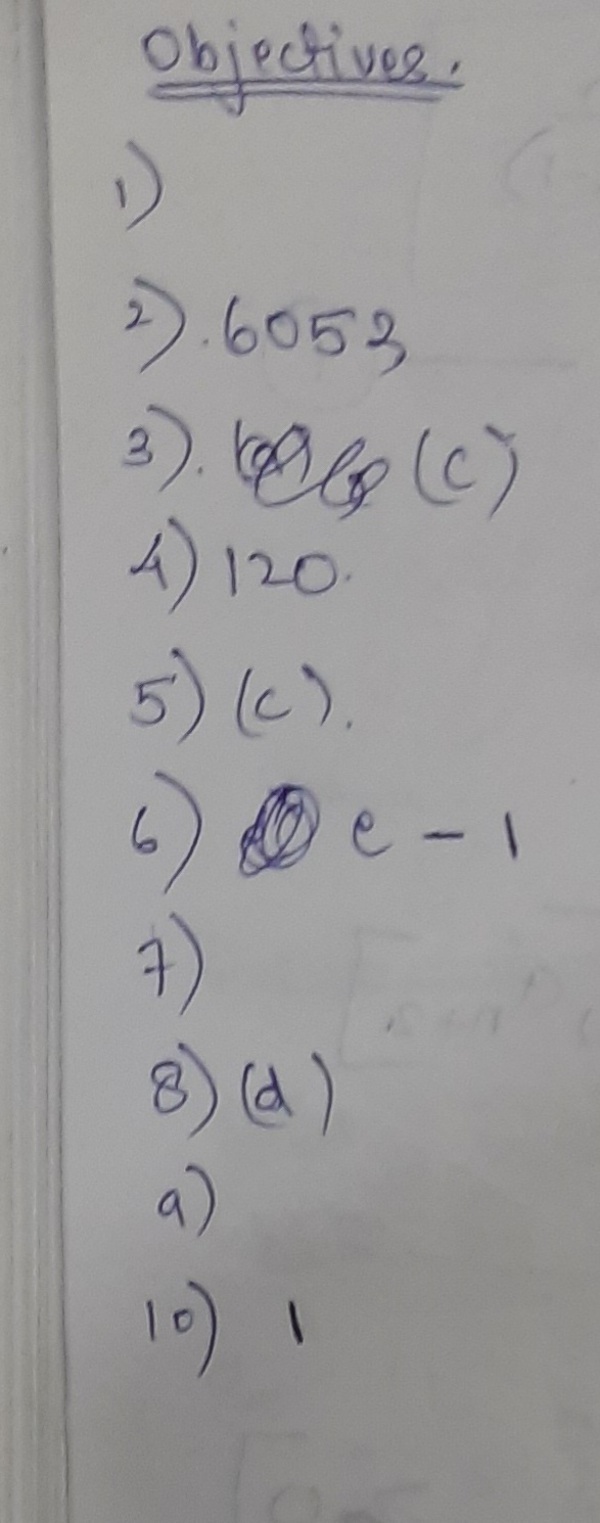 Objectives.
1)
2). 6053
3). (c)
4) 120.
5) (c).
6) e - 1
7)
8) (d)
9)
10) 1